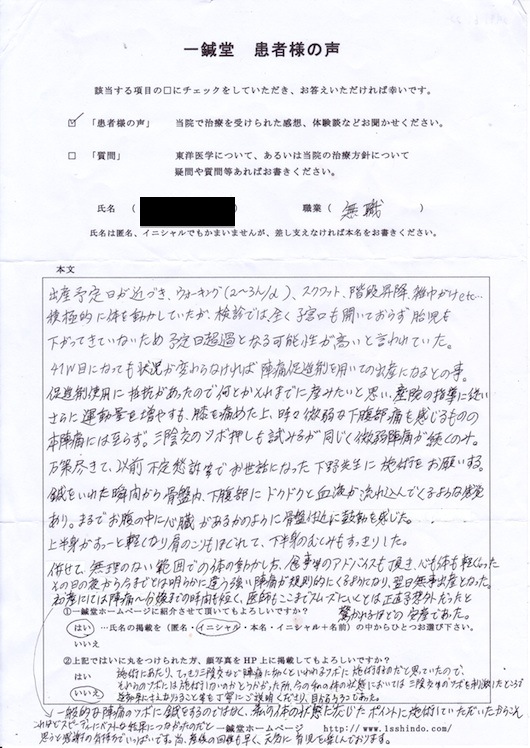 一鍼堂 患者様の声
該当する項目の□にチェックをしていただき、お答えいただければ幸いです。
☑ 「患者様の声」 当院で治療を受けられた感想、体験談などお聞かせください。
□ 「質問」 東洋医学について、あるいは当院の治療方針について
疑問や質問等あればお書きください。
氏名 ( ) 職業 ( 無職 )
氏名は匿名、イニシャルでもかまいませんが、差し支えなければ本名をお書きください。
本文
出産予定日が近づき、ウォーキング(2~3h/d)、スクワット、階段昇降、雑巾がけetc…
積極的に体を動かしていたが、検診では、全く子宮口も開いておらず胎児も
下がってきていないため予定日超過となる可能性が高いと言われていた。
41W目になっても状況が変わらなければ陣痛促進剤を用いての出産になるとの事。
促進剤使用に抵抗があったので何とかそれまでに産みたいと思い、産院の指導に従い
さらに運動量を増やすも、膝を痛めた上、時々微弱な下腹部痛を感じるものの
本陣痛には至らず。三陰交のツボ押しも試みるが同じく微弱陣痛が続くのみ。
万策尽きて、以前不定愁訴等でお世話になった下野先生に施術をお願いする。
鍼をいれた瞬間から骨盤内、下腹部にドクドクと血液が流れ込んでくるような感覚
あり。まるでお腹の中に心臓があるかのように骨盤付近に鼓動を感じた。
上半身がすーっと軽くなり肩のこりもほぐれて、下半身のむくみもすっきりした。
併せて、無理のない範囲での体の動かし方、食事等のアドバイスも頂き、心も体も軽くなった
その日の夜からうちとは明らかに違う強い陣痛が規則的にくるようになり、翌日無事出産となった。
初産にしては陣痛~分娩までの時間も短く、医師もここまでスムーズにいくとは正直予想外だったと
驚かれるほどの安産であった。
①一鍼堂ホームページに紹介させて頂いてもよろしいですか?
はい …氏名の掲載を(匿名・イニシャル・本名・イニシャル+名前)の中からひとつお選び下さい。
いいえ
②上記ではいに丸をつけられた方、顔写真をHP上に掲載してもよろしいですか?
はい
いいえ
施術にあたり、てっきり三陰交など陣痛に効くといわれるツボに施術するものだと思っていたので、
それらのツボには施術しないのかとうかがった所、今の私の体の状態においては三陰交等のツボを刺激したところで
一般的な陣痛のツボに鍼をするのではなく、私の体の状態に応じたポイントに施術していただいたからこそ
思うと感謝の気持ちでいっぱいです。
一鍼堂ホームページ http://www.1sshindo.com/